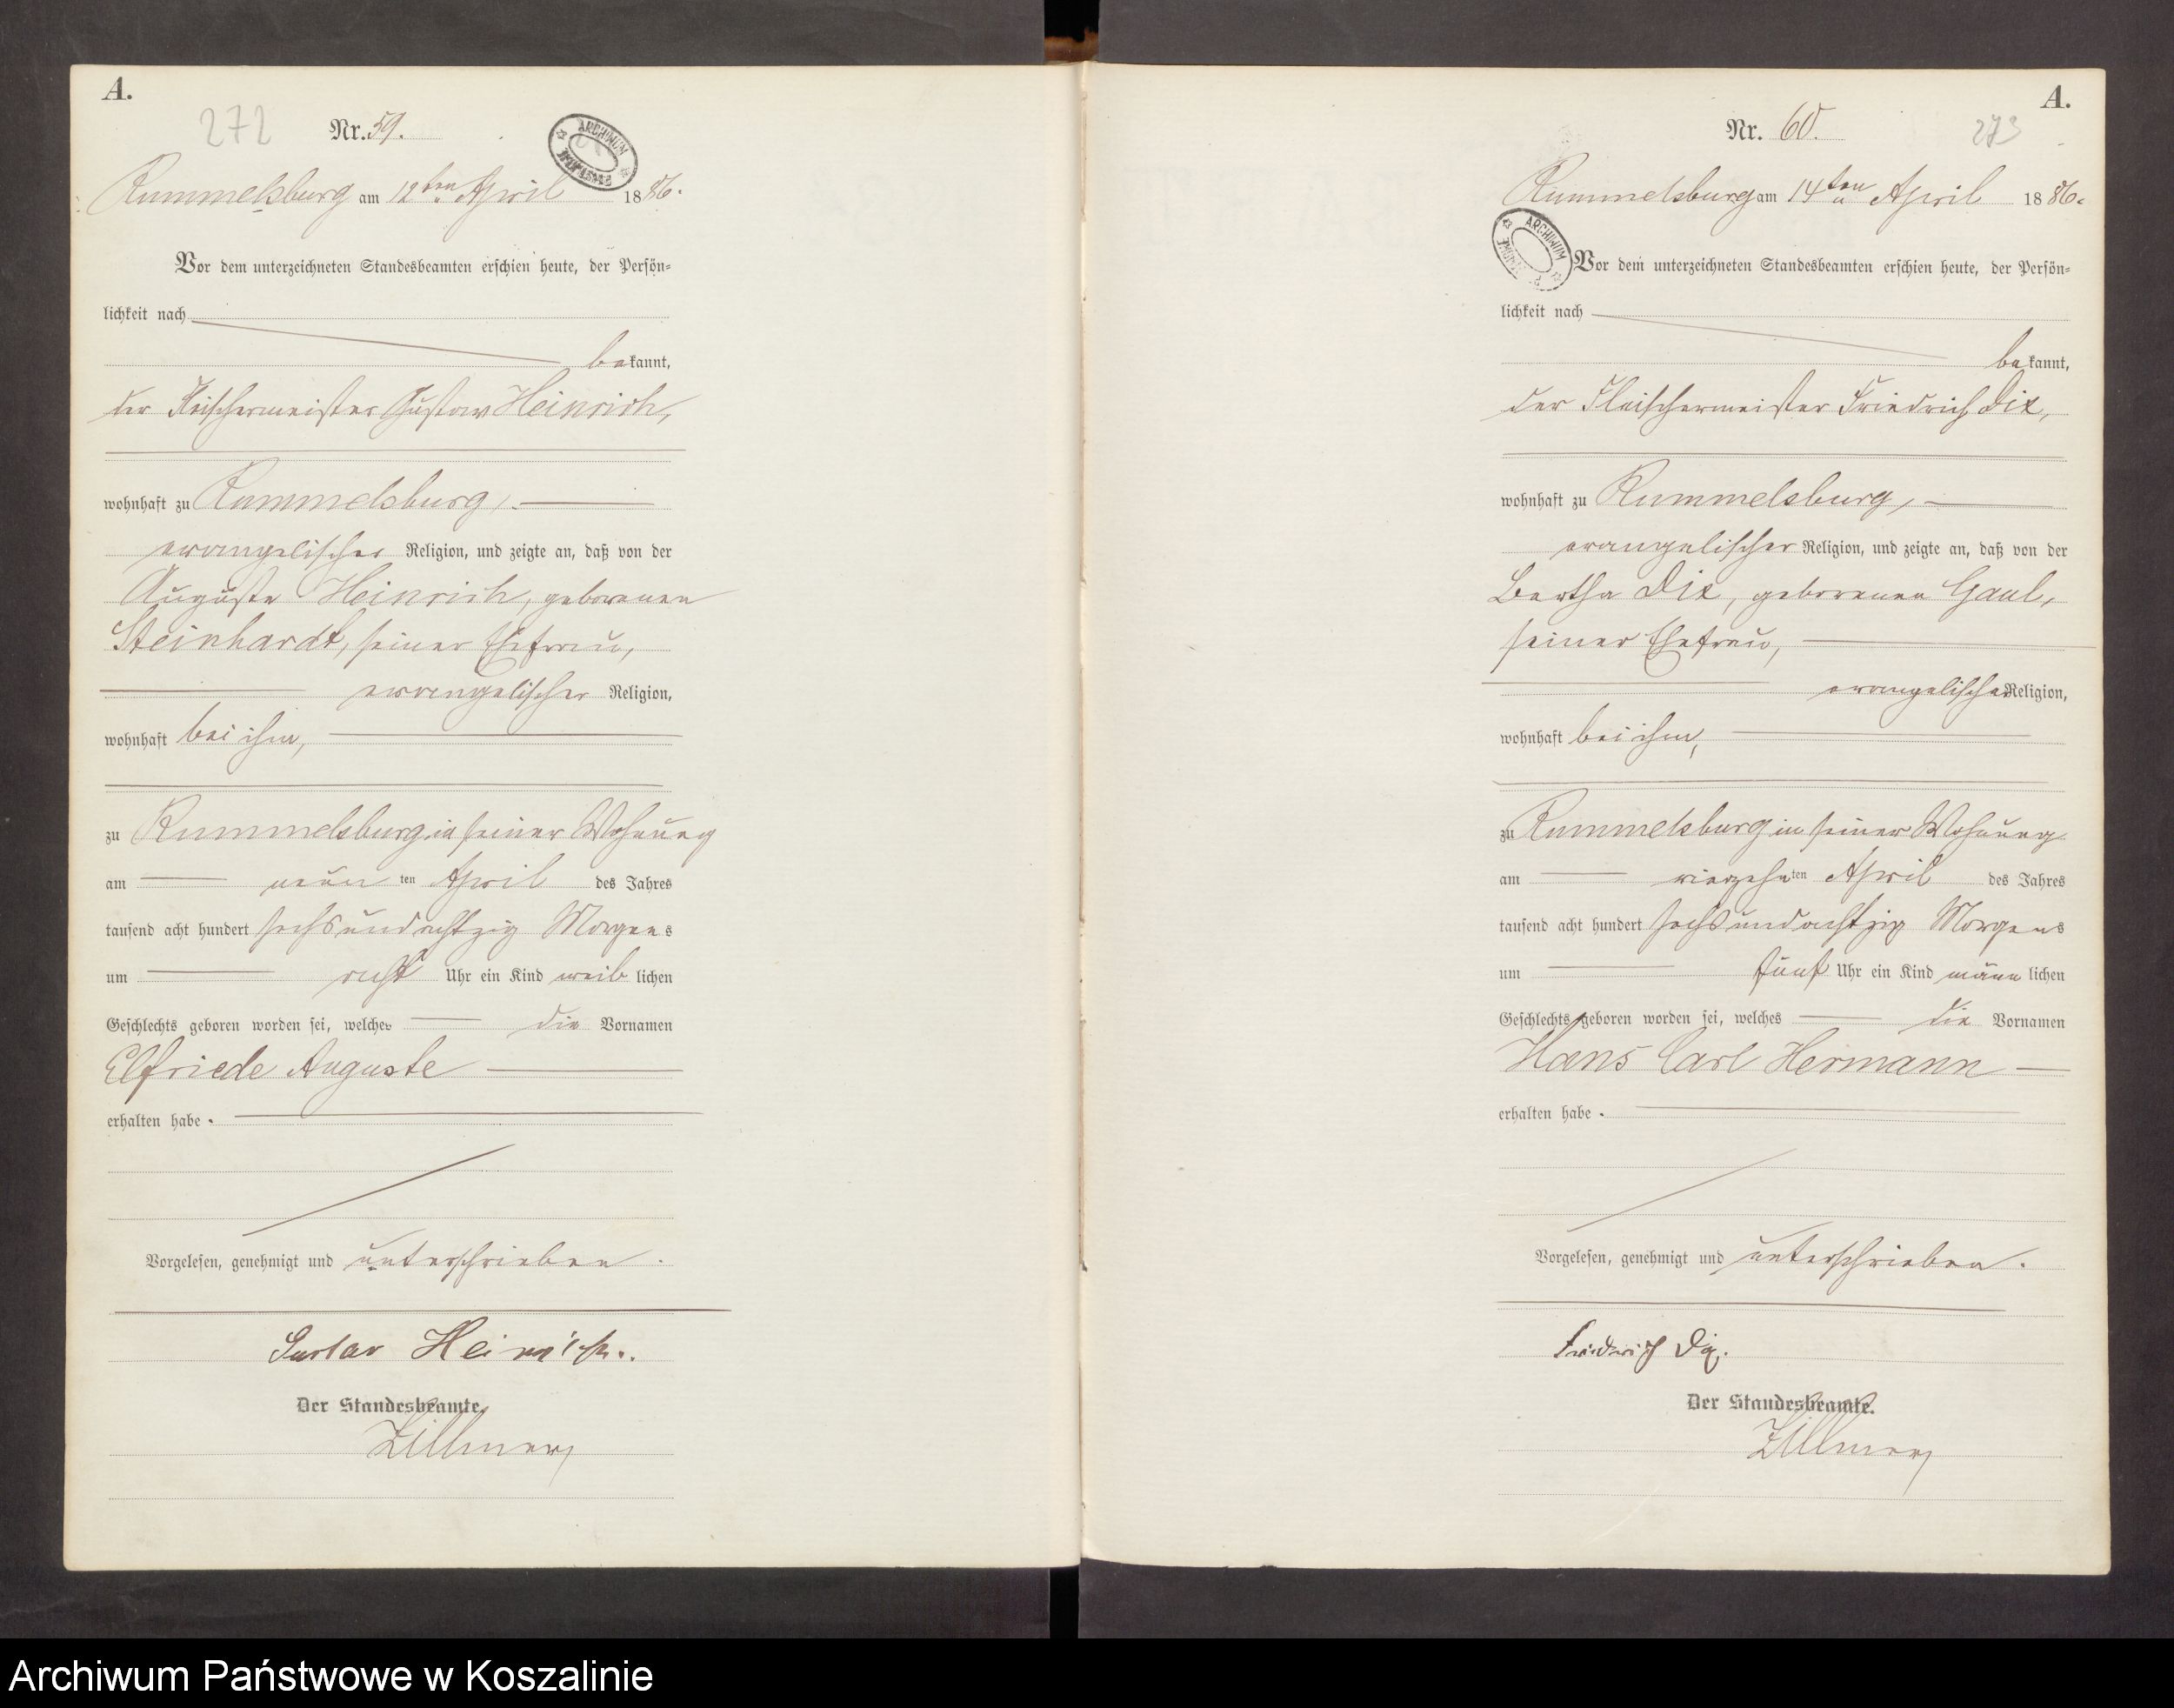 A.
272
Nr. 59.
ARCHIWUM
Rummelsburg am 12ten April 1886.
Vor dem unterzeichneten Standesbeamten erschien heute, der Persön=
lichkeit nach
bekannt,
der Fleischermeister Gustav Heinrich,
wohnhaft zu Rummelsburg,
evangelischer Religion, und zeigte an, daß von der
Auguste Heinrich, geborenen
Steinhardt, seiner Ehefrau,
evangelischer Religion,
wohnhaft bei ihm,
zu Rummelsburg in seiner Wohnung
am neunten April des Jahres
tausend acht hundert sechsundachtzig Morgens
um acht Uhr ein Kind weiblichen
Geschlechts geboren worden sei, welches die Vornamen
Elfriede Auguste
erhalten habe.
Vorgelesen, genehmigt und unterschrieben.
Gustav Heinrich.
Der Standesbeamte.
Zillmer
A.
Nr. 60.
273
Rummelsburg am 14ten April 1886.
ARCHIWUM
Vor dem unterzeichneten Standesbeamten erschien heute, der Persön=
lichkeit nach
bekannt,
der Fleischermeister Friedrich Dix,
wohnhaft zu Rummelsburg,
evangelischer Religion, und zeigte an, daß von der
Bertha Dix, geborenen Gaul,
seiner Ehefrau,
evangelischer Religion,
wohnhaft bei ihm,
zu Rummelsburg in seiner Wohnung
am vierzehnten April des Jahres
tausend acht hundert sechsundachtzig Morgens
um fünf Uhr ein Kind männlichen
Geschlechts geboren worden sei, welches die Vornamen
Hans Carl Hermann
erhalten habe.
Vorgelesen, genehmigt und unterschrieben.
Friedrich Dix.
Der Standesbeamte.
Zillmer
Archiwum Państwowe w Koszalinie